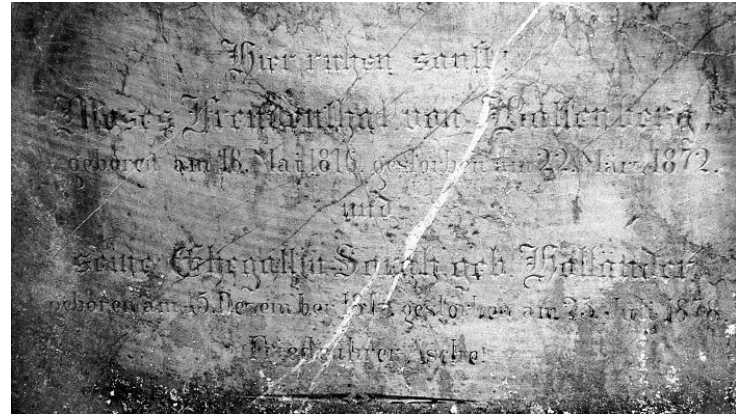 Hier ruhen sanft!
Moses Freudenthal von Bollenberg,
geboren am 16. Mai 1816, gestorben am 22. März 1872.
und
seine Ehegattin Sarah geb Holländer
geboren am 15. Dezember gestorben am 25. Juli 1878
Friede ihrer Asche!